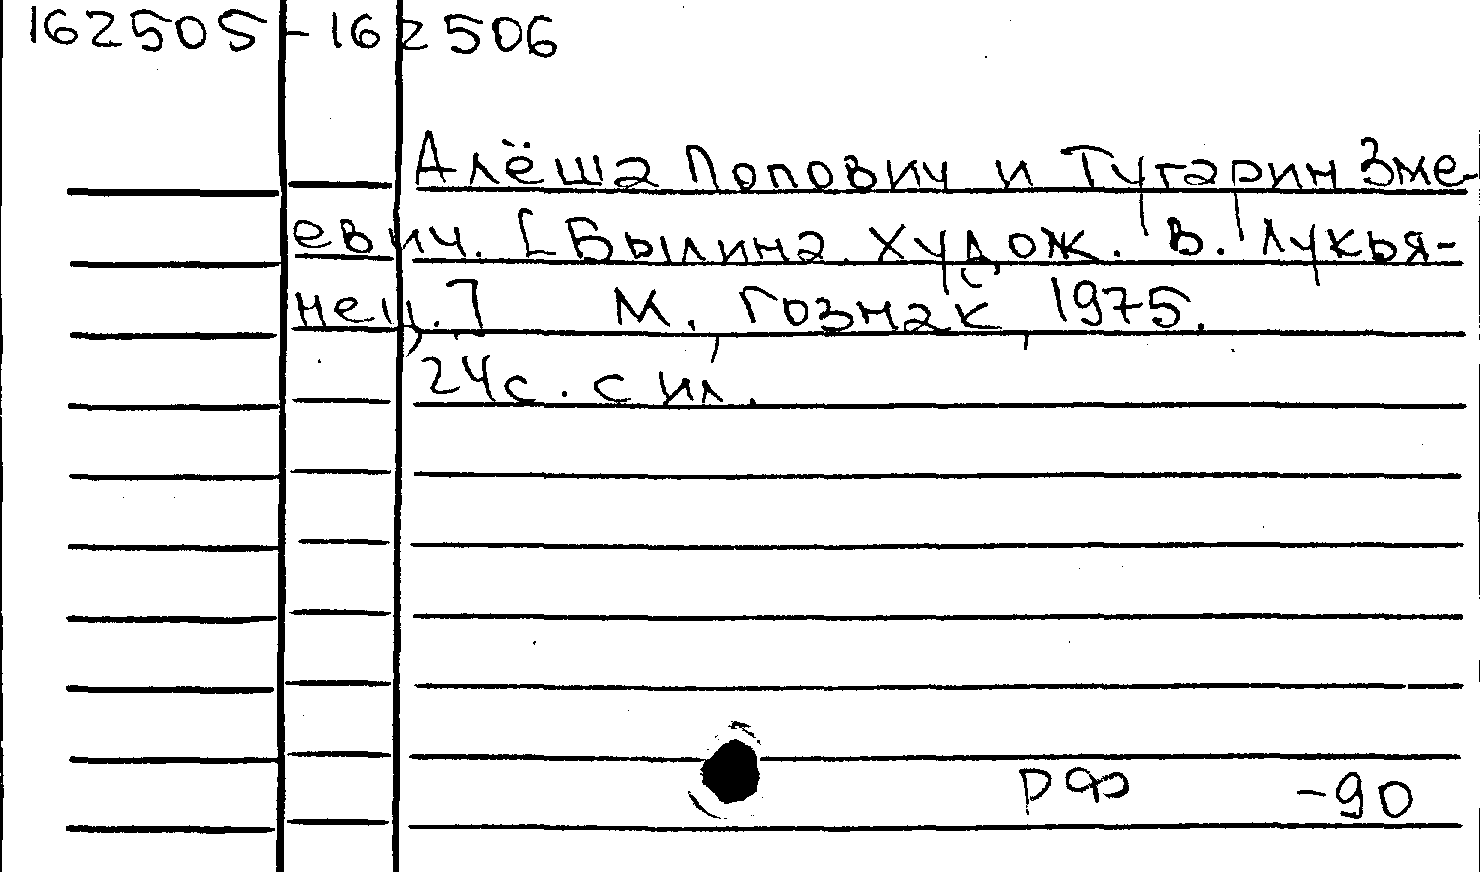 162505-162506
Алёша Попович и Тугарин Зме-
евич. [Былина. Худож. В. Лукья-
нец.] М., Гознак, 1975.
24с. с ил.
РФ -90